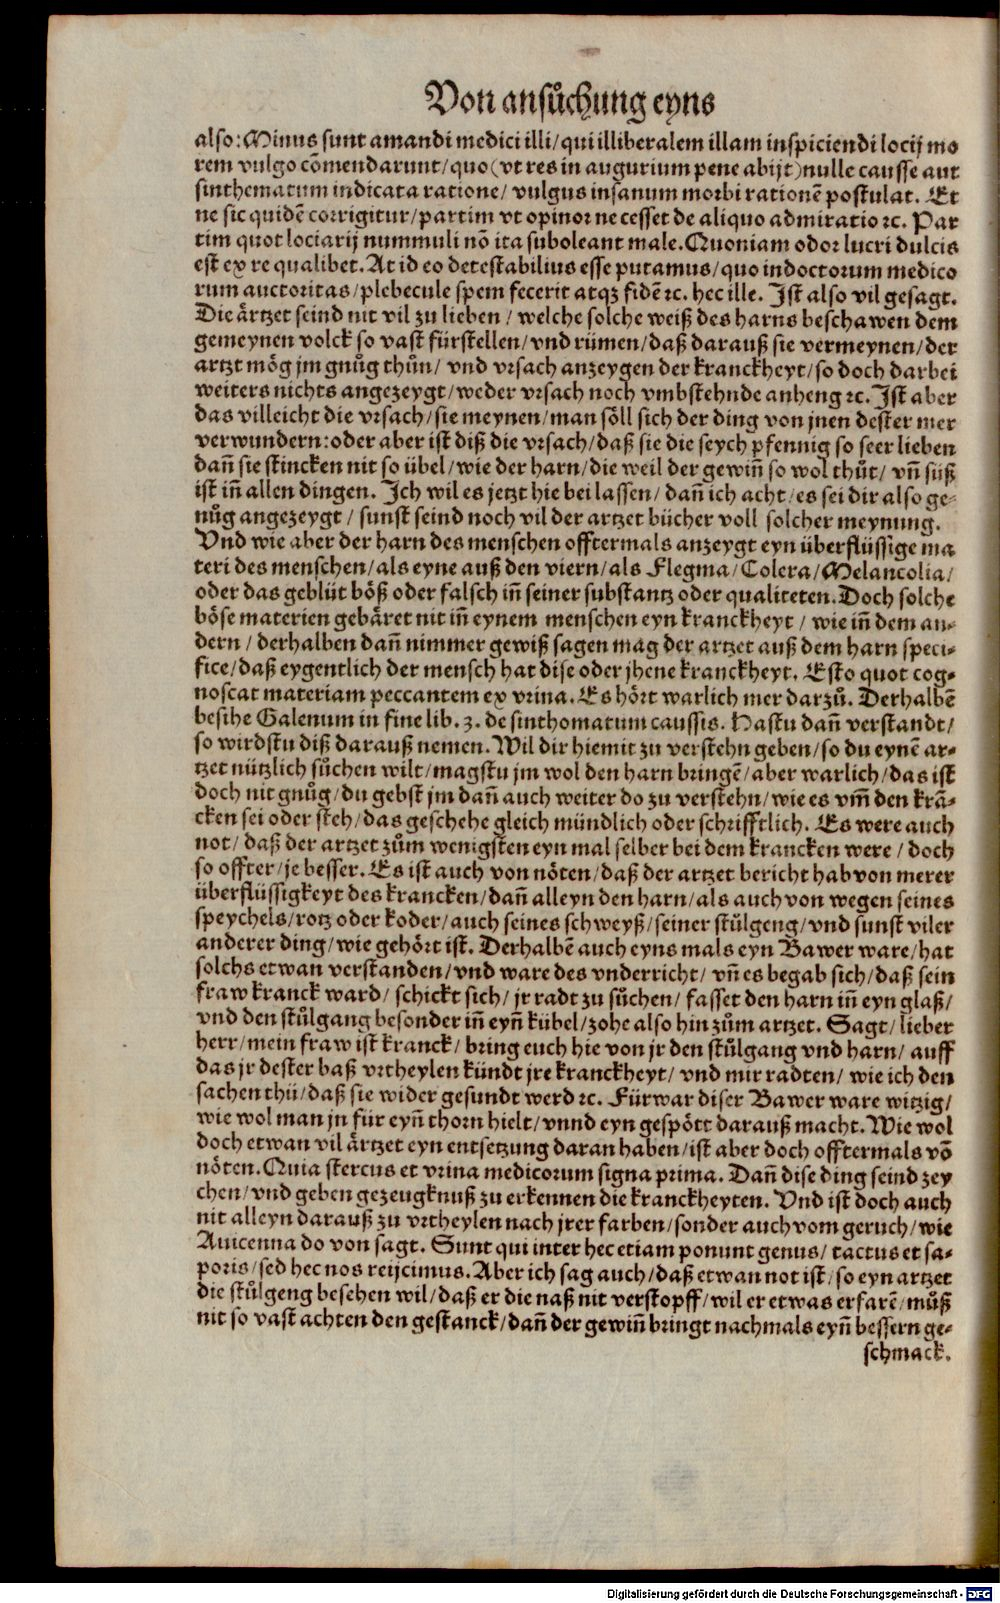 Von ansůchung eyns
also: Minus sunt amandi medici illi/ qui illiberalem illam inspiciendi locij mo
rem vulgo cōmendarunt/ quo (vt res in augurium pene abijt) nulle causse aut
sinthematum indicata ratione/ vulgus insanum morbi rationē postulat. Et
ne sic quidē corrigitur/ partim vt opinor ne cesset de aliquo admiratio ⁊c. Par
tim quot lociarij nummuli nō ita suboleant male. Quoniam odor lucri dulcis
est ex re qualibet. At id eo detestabilius esse putamus/ quo indoctorum medico
rum auctoritas/ plebecule spem fecerit atqꝫ fidē ⁊c. hec ille. Ist also vil gesagt.
Die ärtzet seind nit vil zu lieben/ welche solche weiß des harns beschawen dem
gemeynen volck so vast fürstellen/ vnd rümen/ daß darauß sie vermeynen/ der
artzt mög jm gnůg thůn/ vnd vrsach anzeygen der kranckheyt/ so doch darbei
weiters nichts angezeygt/ weder vrsach noch vmbstehnde anheng ⁊c. Ist aber
das villeicht die vrsach/ sie meynen/ man söll sich der ding von jnen dester mer
verwundern: oder aber ist diß die vrsach/ daß sie die seych pfennig so seer lieben
dañ sie stincken nit so übel/ wie der harn/ die weil der gewiñ so wol thůt/ vñ süß
ist iñ allen dingen. Ich wil es jetzt hie bei lassen/ dañ ich acht/ es sei dir also ge-
nůg angezeygt/ sunst seind noch vil der artzet bücher voll solcher meynung.
Vnd wie aber der harn des menschen offtermals anzeygt eyn überflüssige ma
teri des menschen/ als eyne auß den viern/ als Flegma/ Colera/ Melancolia/
oder das geblüt böß oder falsch iñ seiner substantz oder qualiteten. Doch solche
böse materien gebäret nit iñ eynem menschen eyn kranckheyt/ wie iñ dem an-
dern/ derhalben dañ nimmer gewiß sagen mag der artzet auß dem harn speci-
fice/ daß eygentlich der mensch hat dise oder jhene kranckheyt. Esto quot cog-
noscat materiam peccantem ex vrina. Es hört warlich mer darzů. Derhalbē
besihe Galenum in fine lib. 3. de sinthomatum caussis. Hastu dañ verstandt/
so wirdstu diß darauß nemen. Wil dir hiemit zu verstehn geben/ so du eynē ar-
tzet nützlich sůchen wilt/ magstu jm wol den harn bringē/ aber warlich/ das ist
doch nit gnůg/ du gebst jm dañ auch weiter do zu verstehn/ wie es vm̄ den krā-
cken sei oder steh/ das geschehe gleich mündlich oder schrifftlich. Es were auch
not/ daß der artzet zům wenigsten eyn mal selber bei dem krancken were/ doch
so offter/ je besser. Es ist auch von nöten/ daß der artzet bericht hab von merer
überflüssigkeyt des krancken/ dañ alleyn den harn/ als auch von wegen seines
speychels/ rotz oder koder/ auch seines schweyß/ seiner stůlgeng/ vnd sunst viler
anderer ding/ wie gehört ist. Derhalbē auch eyns mals eyn Bawer ware/ hat
solchs etwan verstanden/ vnd ware des vnderricht/ vñ es begab sich/ daß sein
fraw kranck ward/ schickt sich/ jr radt zu sůchen/ fasset den harn iñ eyn glaß/
vnd den stůlgang besonder iñ eyñ kübel/ zohe also hin zům artzet. Sagt/ lieber
herr/ mein fraw ist kranck/ bring euch hie von jr den stůlgang vnd harn/ auff
das jr dester baß vrtheylen kündt jre kranckheyt/ vnd mir radten/ wie ich den
sachen thü/ daß sie wider gesundt werd ⁊c. Fürwar diser Bawer ware witzig/
wie wol man jn für eyñ thorn hielt/ vnnd eyn gespött darauß macht. Wie wol
doch etwan vil ärtzet eyn entsetzung daran haben/ ist aber doch offtermals vō
nöten. Quia stercus et vrina medicorum signa prima. Dañ dise ding seind zey
chen/ vnd geben gezeugknuß zu erkennen die kranckheyten. Vnd ist doch auch
nit alleyn darauß zu vrtheylen nach jrer farben/ sonder auch vom geruch/ wie
Auicenna do von sagt. Sunt qui inter hec etiam ponunt genus/ tactus et sa-
poris/ sed hec nos reijcimus. Aber ich sag auch/ daß etwan not ist/ so eyn artzet
die stůlgeng besehen wil/ daß er die naß nit verstopff/ wil er etwas erfarē/ můß
nit so vast achten den gestanck/ dañ der gewiñ bringt nachmals eyñ bessern ge-
schmack.
Digitalisierung gefördert durch die Deutsche Forschungsgemeinschaft - DFG